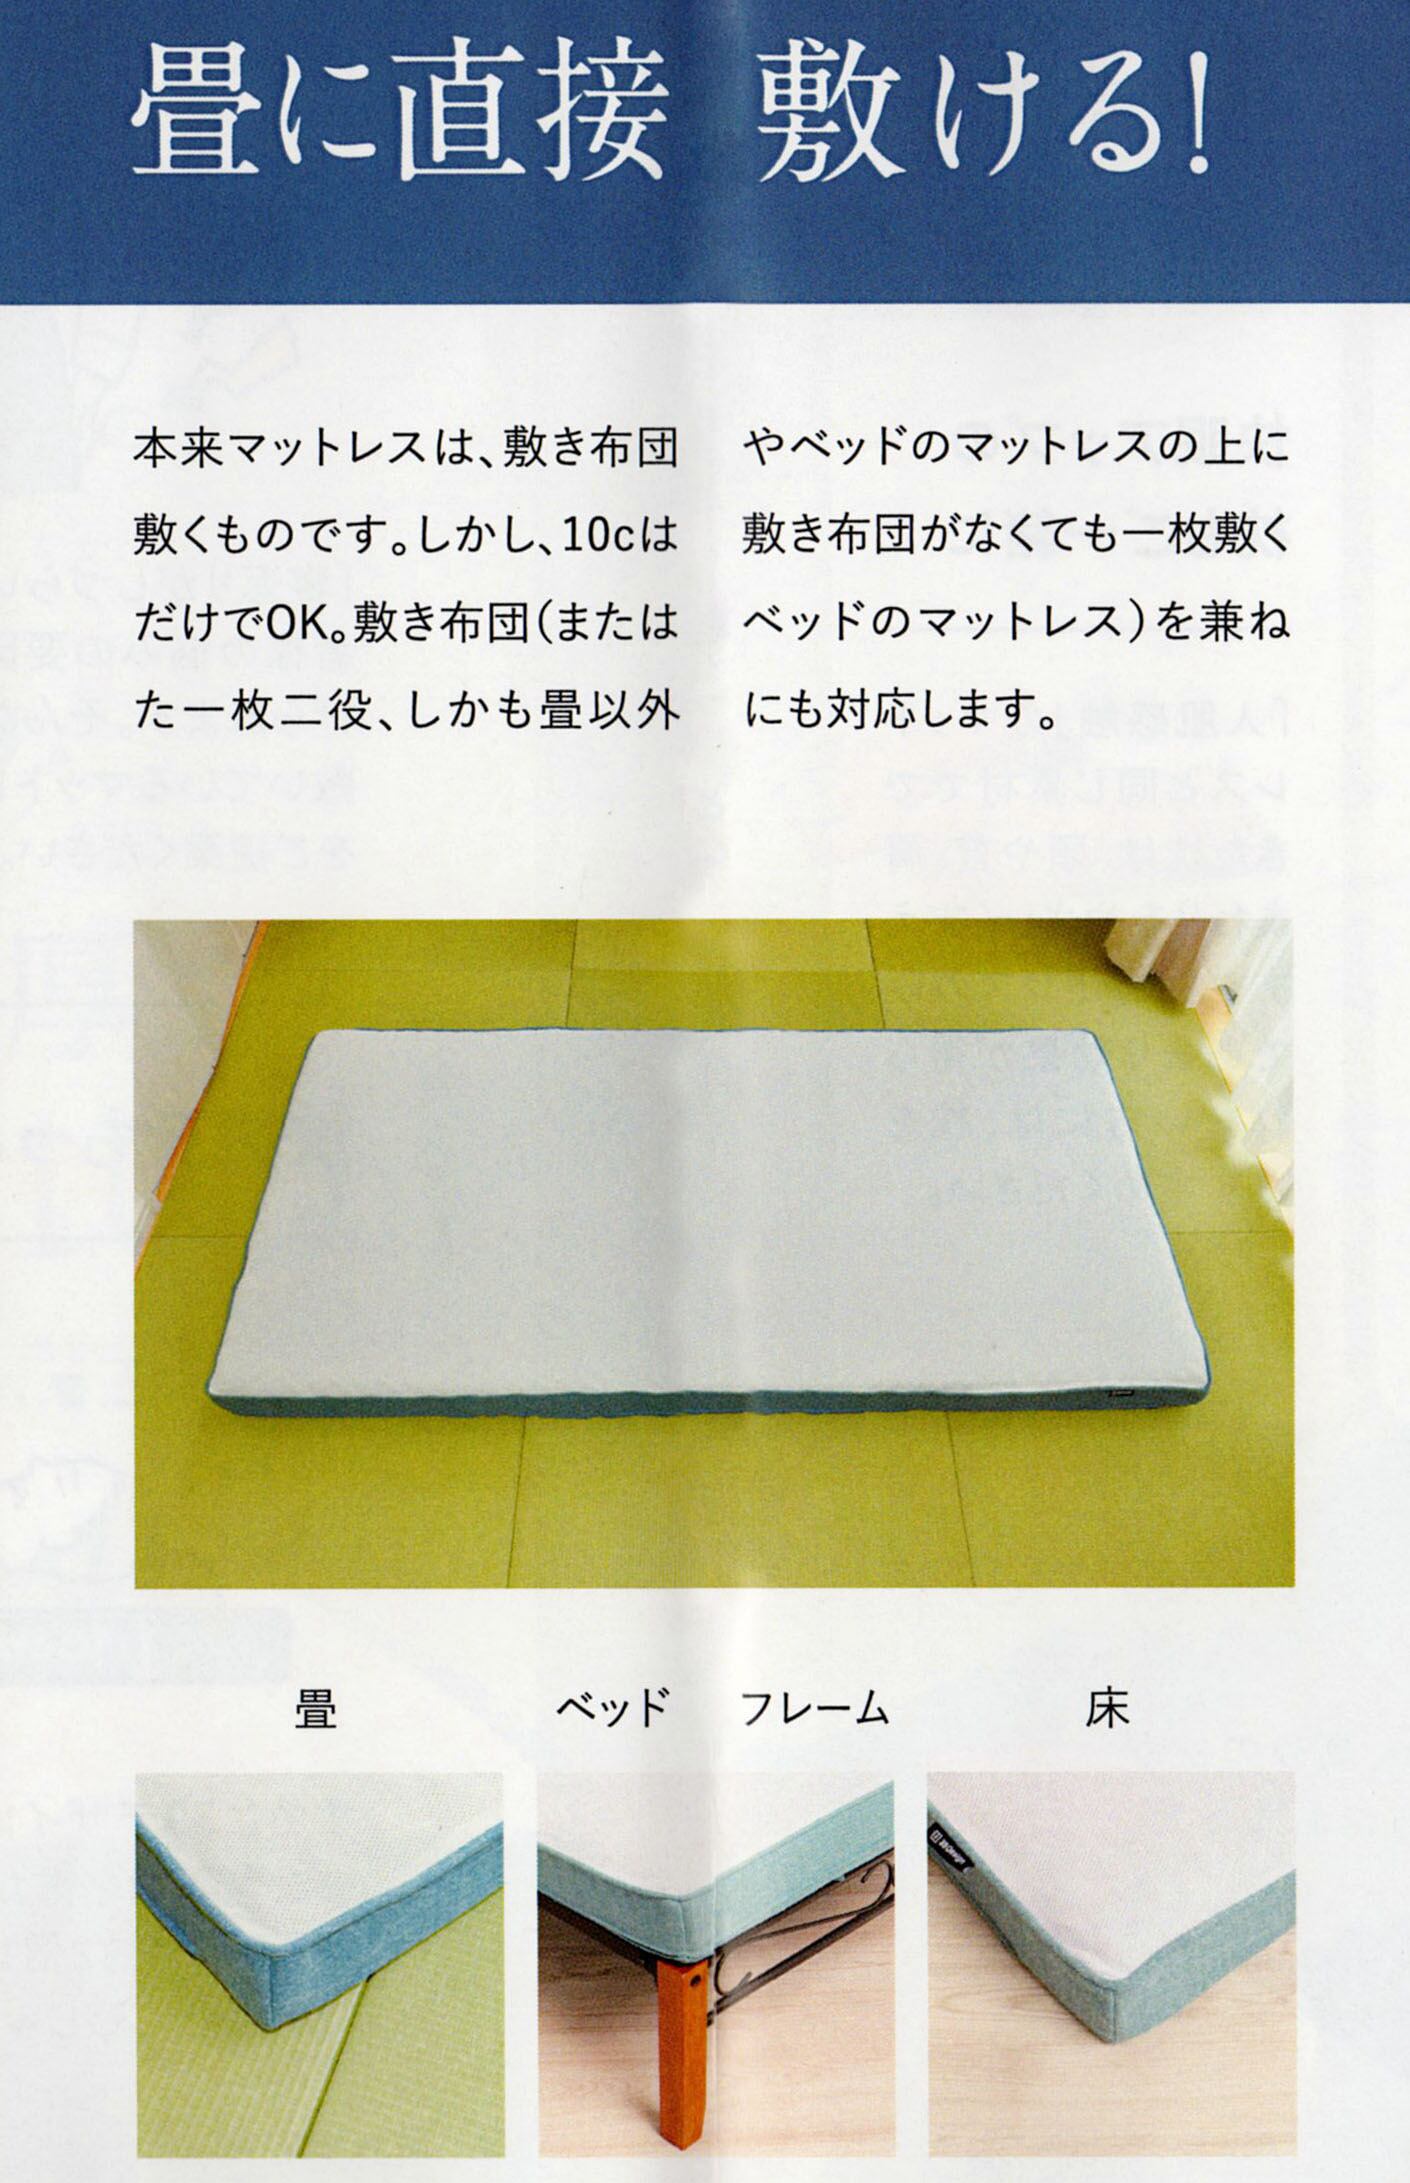 畳に直接 敷ける!
本来マットレスは、敷き布団やベッドのマットレスの上に
敷くものです。しかし、10cは敷き布団がなくても一枚敷く
だけでOK。敷き布団(またはベッドのマットレス)を兼ね
た一枚二役、しかも畳以外にも対応します。
畳 ベッド フレーム 床